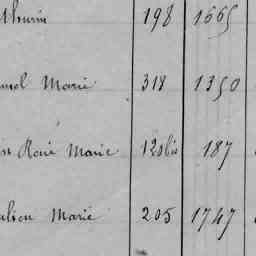 thurin 198 1665
Marie 318 1350
René Marie 120bis 187
Marie 205 1747